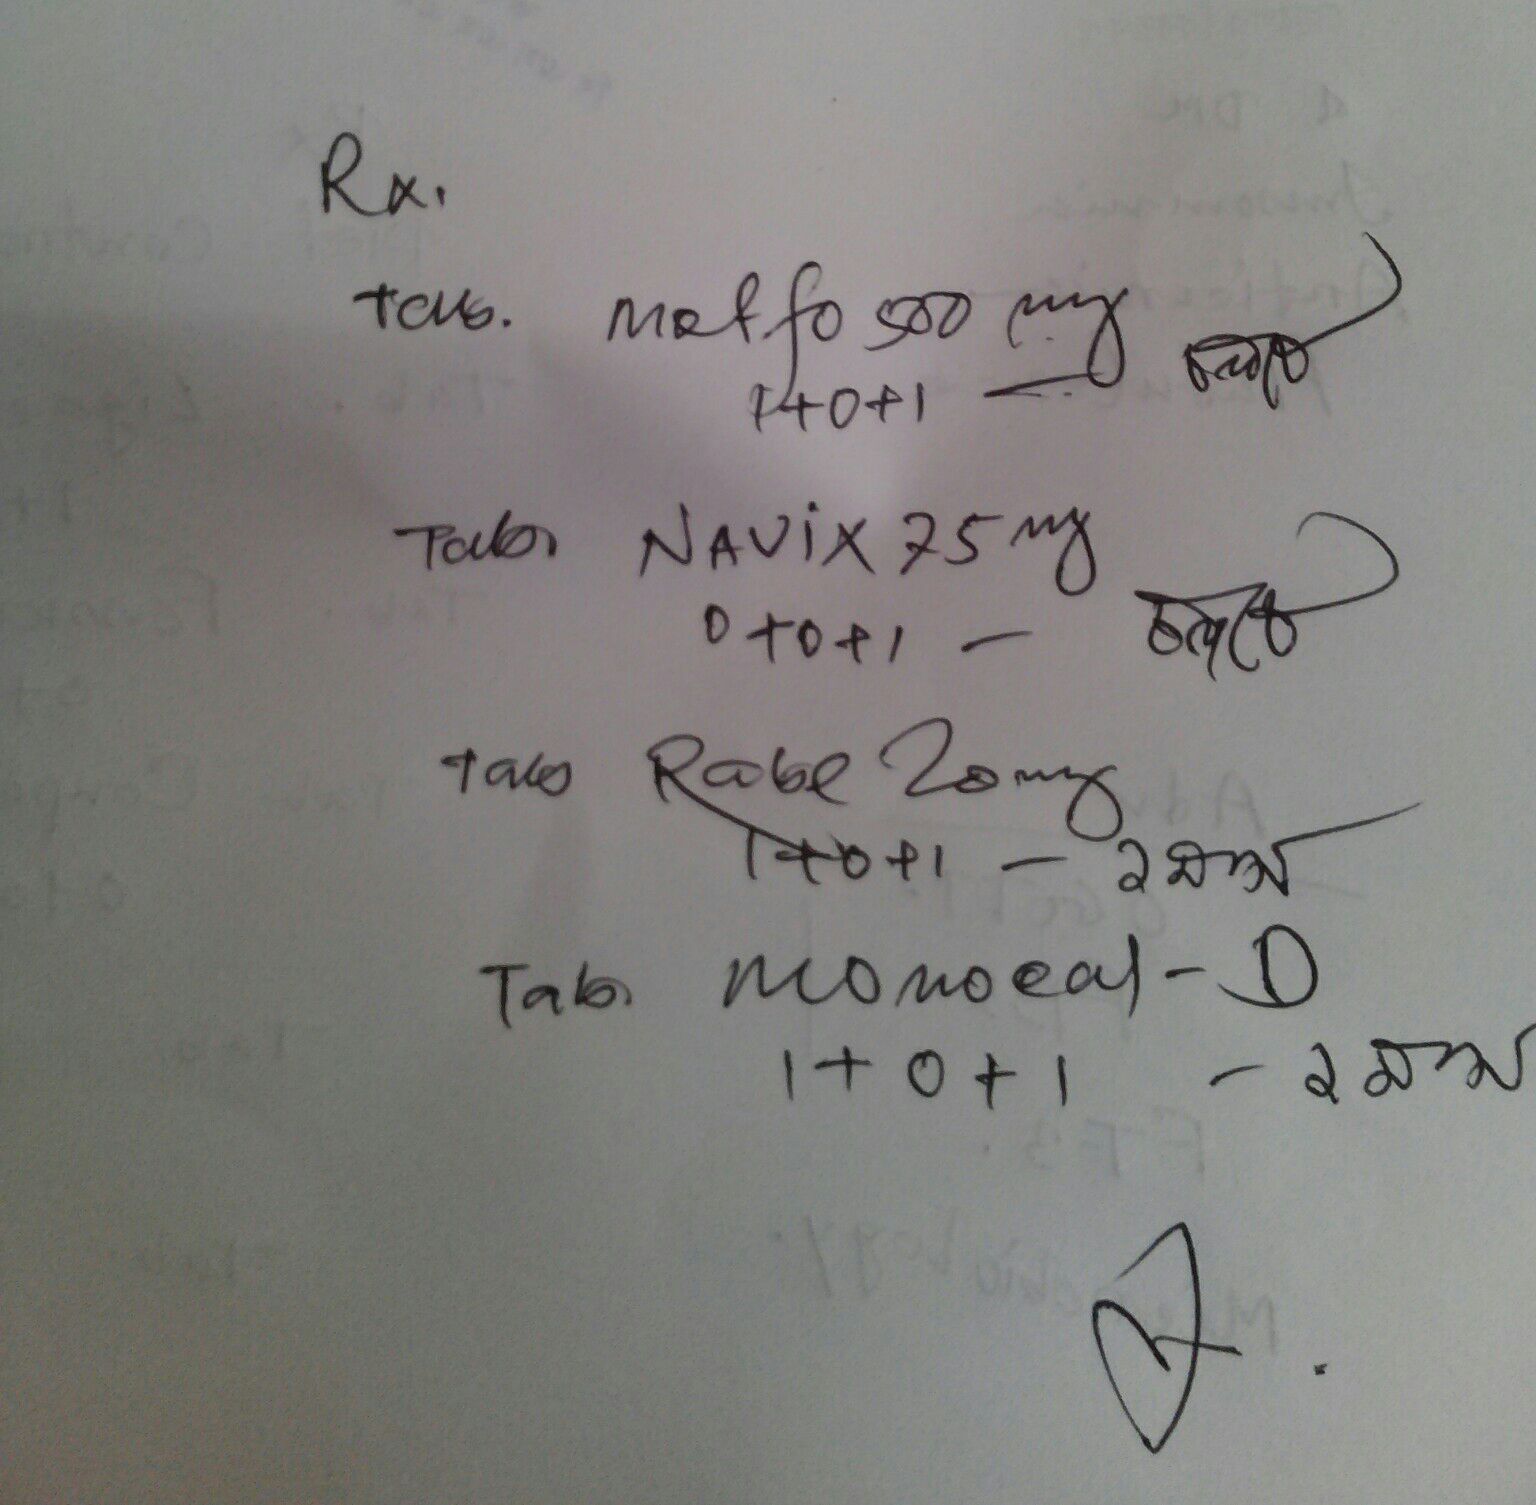 Rx.
Tab. Metfo 500 mg
1+0+1 — চলবে
Tab. NAVIX 75 mg
0+0+1 — চলবে
Tab Rabe 20 mg
1+0+1 — ২ মাস
Tab. Monocal-D
1+0+1 - ২ মাস